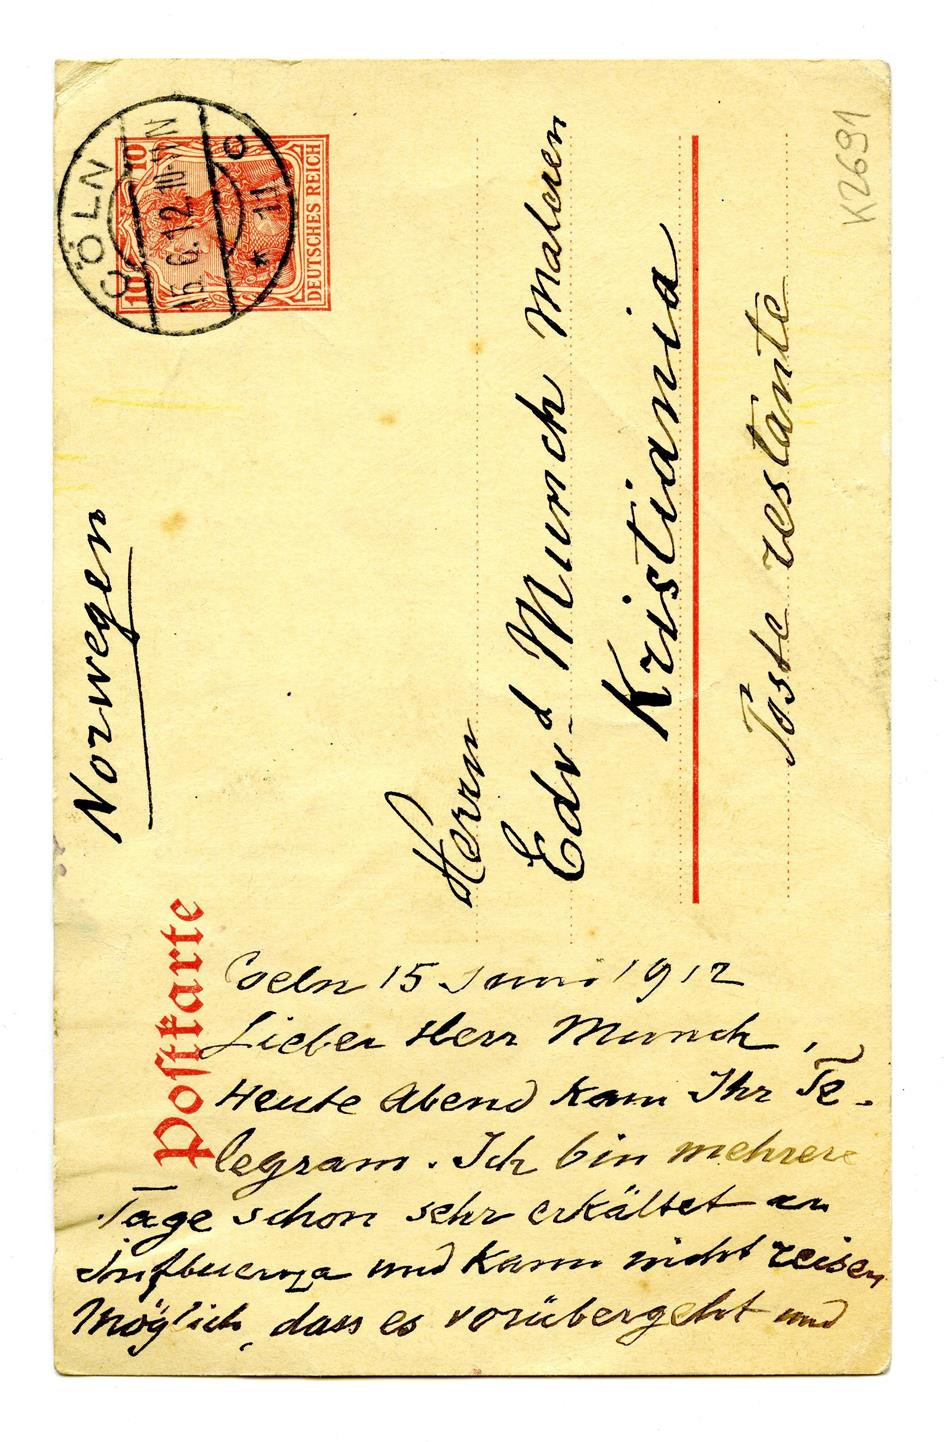 Postkarte
Norwegen
10 10
DEUTSCHES REICH
CÖLN
15.6.12.10-11N
* 11 c
Herrn
Edvd Munch Maleren
Kristiania
Poste restante
K2691
Coeln 15 Juni 1912
Lieber Herr Munch,
Heute Abend kam Ihr Te-
legram. Ich bin mehrere
Tage schon sehr erkältet an
Influenza und kann nicht reisen
Möglich, dass es vorübergeht und